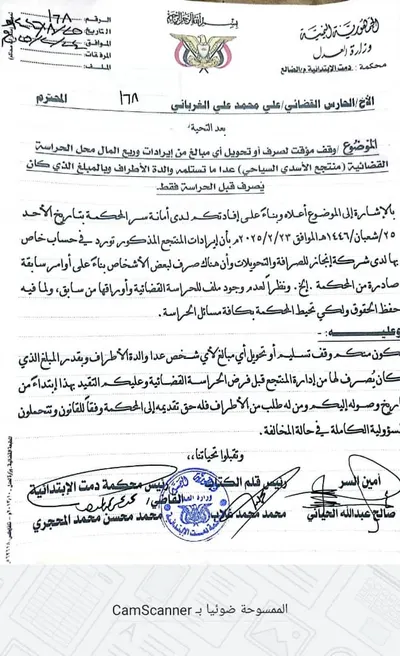 بسم الله الرحمن الرحيم
الجمهورية اليمنية
وزارة العدل
محكمة: دمت الإبتدائية م/الضالع
الرقم: ١٦٨
التاريخ:
الموافق:
المرفقات:
الملف:
الأخ/الحارس القضائي/علي محمد علي الغرباني ١٦٨ المحترم
بعد التحية؛
الموضوع / وقف مؤقت لصرف أو تحويل أي مبالغ من إيرادات وريع المال محل الحراسة
القضائية (منتجع الأسدي السياحي) عدا ما تستلمه والدة الأطراف وبالمبلغ الذي كان
يُصرف قبل الحراسة فقط.
بالإشارة إلى الموضوع أعلاه وبناءً على إفادتكم لدى أمانة سر المحكمة بتاريخ الأحد
٢٥/شعبان/١٤٤٦هـ الموافق ٢٠٢٥/٢/٢٣م بأن إيرادات المنتجع المذكور تورد في حساب خاص
بها لدى شركة إنجاز للصرافة والتحويلات وأن هناك صرف لبعض الأشخاص بناءً على أوامر سابقة
صادرة من المحكمة .إلخ. ونظراً لعدم وجود ملف للحراسة القضائية وأوراقها من سابق، ولما فيه
حفظ الحقوق ولكي تحيط المحكمة بكافة مسائل الحراسة.
وعليه :-
يكون منكم وقف تسليم أو تحويل أي مبالغ لأي شخص عدا والدة الأطراف وبقدر المبلغ الذي
كان يُصرف لها من إدارة المنتجع قبل فرض الحراسة القضائية وعليكم التقيد بهذا إبتداءً من
تاريخ وصوله إليكم ومن له طلب من الأطراف فله حق تقديمه إلى المحكمة وفقاً للقانون وتتحملون
المسؤولية الكاملة في حالة المخالفة.
وتقبلوا تحياتنا،،
أمين السر
صالح عبدالله الحياني
رئيس قلم الكتاب
محمد محمد غلاب
رئيس محكمة دمت الإبتدائية
القاضي/
محمد محسن محمد المحجري
الممسوحة ضوئيا بـ CamScanner